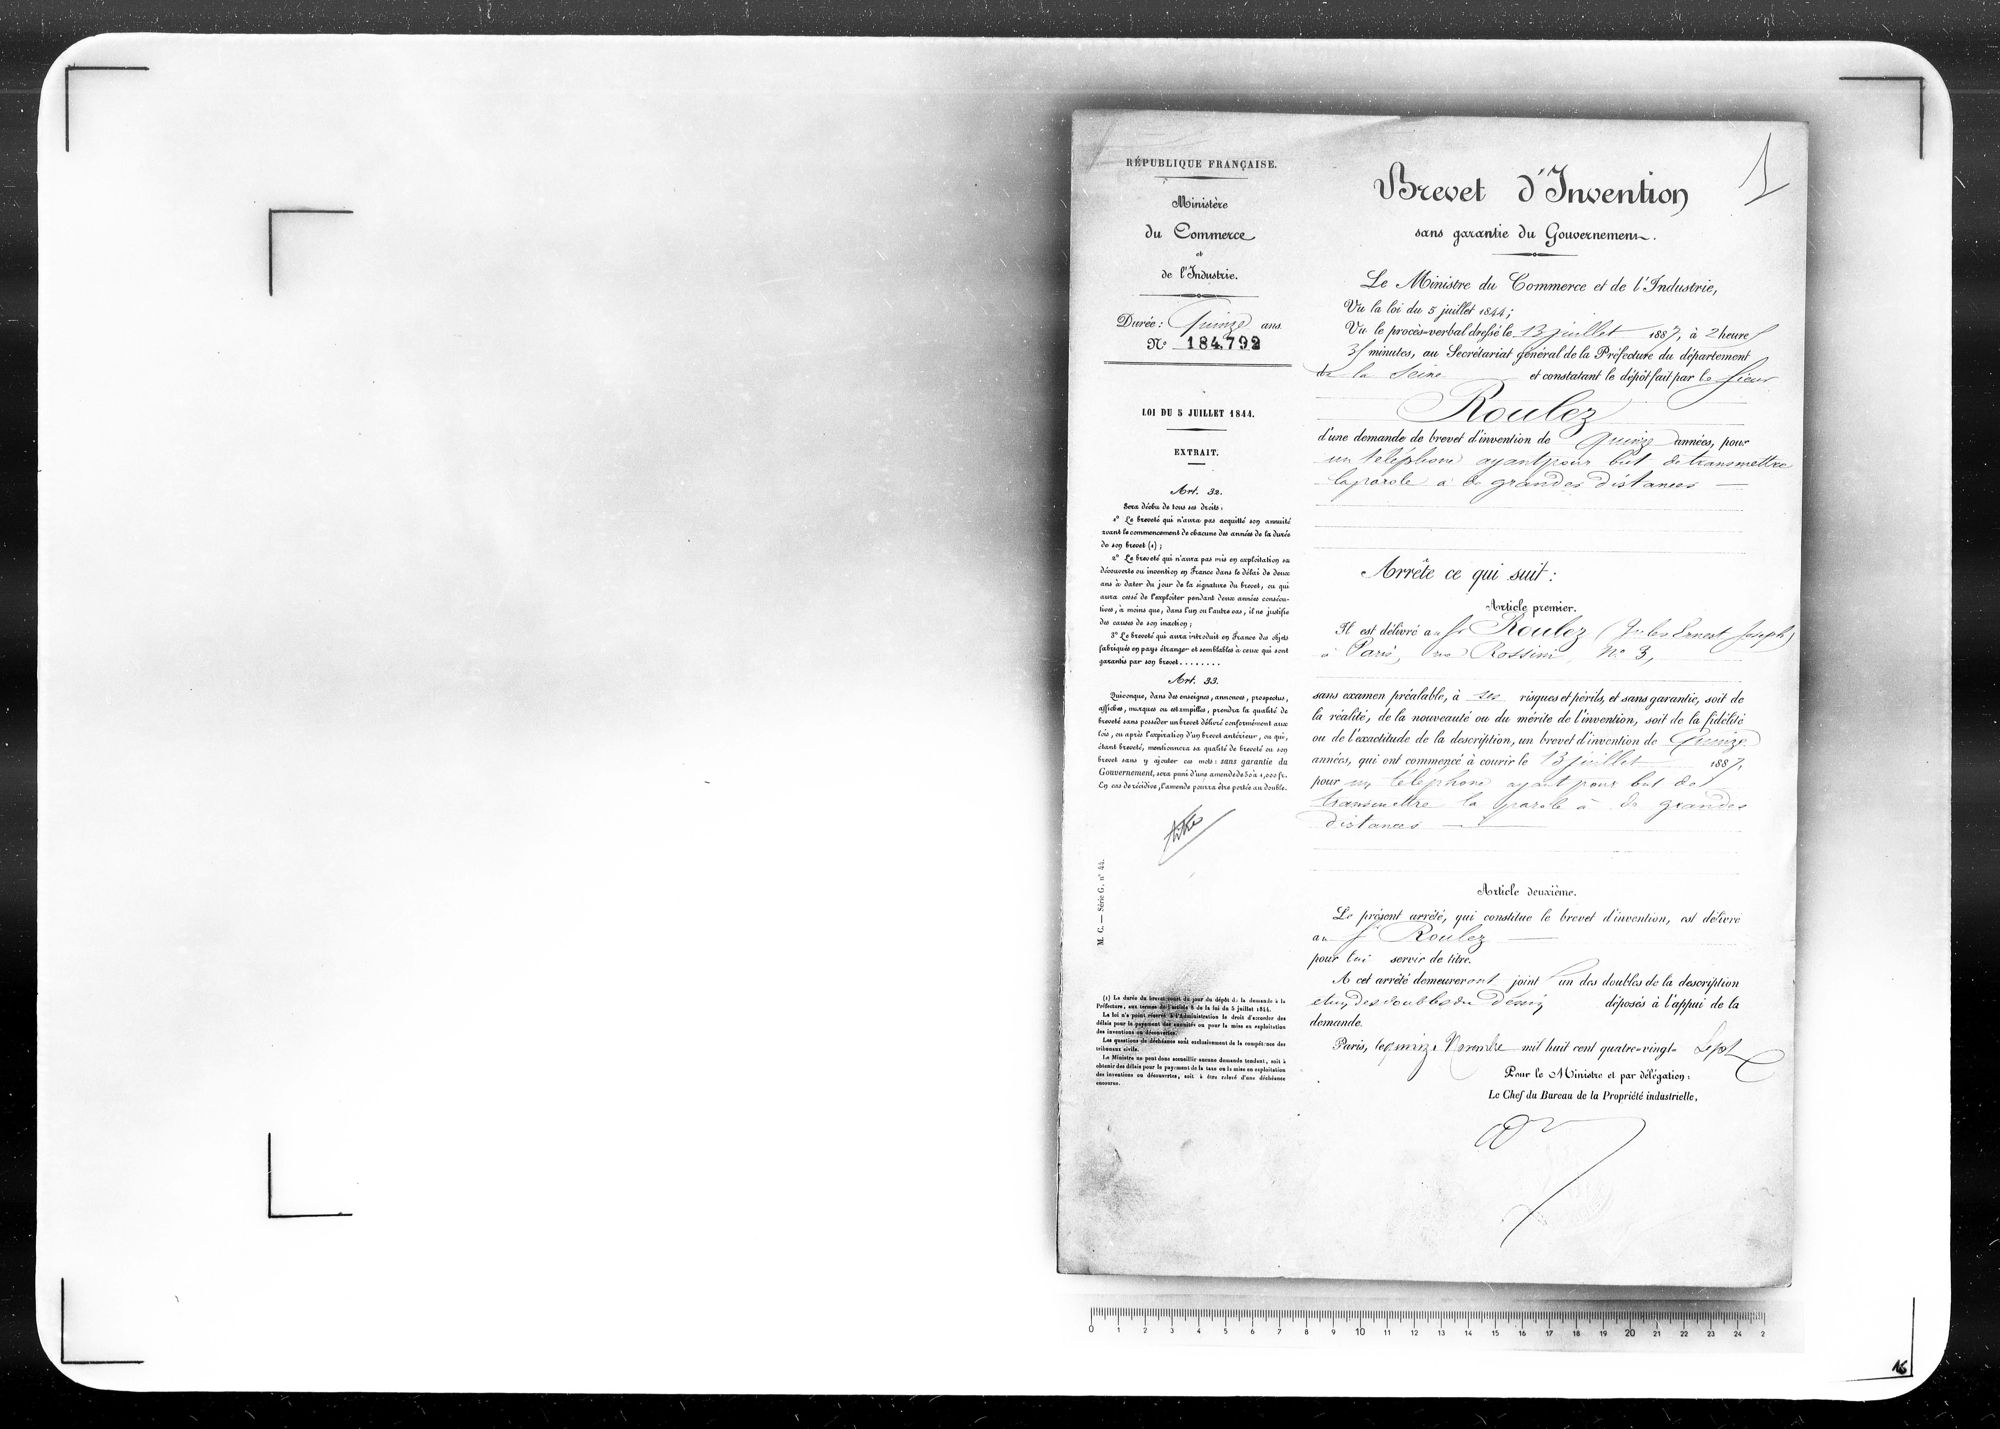 RÉPUBLIQUE FRANÇAISE.
Ministère
du Commerce
et
de l'Industrie.
Durée : Quinze ans.
N° 184,792
LOI DU 5 JUILLET 1844.
EXTRAIT.
Art. 32.
Sera déchu de tous ses droits :
1° Le breveté qui n'aura pas acquitté son annuité
avant le commencement de chacune des années de la durée
de son brevet (1) ;
2° Le breveté qui n'aura pas mis en exploitation sa
découverte ou invention en France dans le délai de deux
ans à dater du jour de la signature du brevet, ou qui
aura cessé de l'exploiter pendant deux années consécu-
tives, à moins que, dans l'un ou l'autre cas, il ne justifie
des causes de son inaction ;
3° Le breveté qui aura introduit en France des objets
fabriqués en pays étranger et semblables à ceux qui sont
garantis par son brevet........
Art. 33.
Quiconque, dans des enseignes, annonces, prospectus,
affiches, marques ou estampilles, prendra la qualité de
breveté sans posséder un brevet délivré conformément aux
lois, ou après l'expiration d'un brevet antérieur, ou qui,
étant breveté, mentionnera sa qualité de breveté ou son
brevet sans y ajouter ces mots : sans garantie du
Gouvernement, sera puni d'une amende de 50 à 1,000 fr.
En cas de récidive, l'amende pourra être portée au double.
M. C. — Série G. n° 44.
(1) La durée du brevet court du jour du dépôt de la demande à la
Préfecture, aux termes de l'article 8 de la loi du 5 juillet 1844.
La loi n'a point réservé à l'Administration le droit d'accorder des
délais pour le payement des annuités ou pour la mise en exploitation
des inventions ou découvertes.
Les questions de déchéance sont exclusivement de la compétence des
tribunaux civils.
Le Ministre ne peut donc accueillir aucune demande tendant, soit à
obtenir des délais pour le payement de la taxe ou la mise en exploitation
des inventions ou découvertes, soit à être relevé d'une déchéance
encourue.
Brevet d'Invention
sans garantie du Gouvernement.
Le Ministre du Commerce et de l'Industrie,
Vu la loi du 5 juillet 1844 ;
Vu le procès-verbal dressé le 13 juillet 1887, à 2 heures
minutes, au Secrétariat général de la Préfecture du département
de la Seine et constatant le dépôt fait par le sieur
Roulez
d'une demande de brevet d'invention de Quinze années, pour
un téléphone ayant pour but de transmettre
la parole à de grandes distances —
Arrête ce qui suit :
Article premier.
Il est délivré au Sr Roulez (Jules Ernest Joseph)
à Paris, rue Rossini, N° 3,
sans examen préalable, à ses risques et périls, et sans garantie, soit de
la réalité, de la nouveauté ou du mérite de l'invention, soit de la fidélité
ou de l'exactitude de la description, un brevet d'invention de Quinze
années, qui ont commencé à courir le 13 juillet 1887,
pour un téléphone ayant pour but de
transmettre la parole à de grandes
distances —
Article deuxième.
Le présent arrêté, qui constitue le brevet d'invention, est délivré
au Sr Roulez —
pour lui servir de titre.
A cet arrêté demeureront joint un des doubles de la description
et un des doubles du dessin déposés à l'appui de la
demande.
Paris, le quinze Novembre mil huit cent quatre-vingt- Sept
Pour le Ministre et par délégation :
Le Chef du Bureau de la Propriété industrielle,
0 1 2 3 4 5 6 7 8 9 10 11 12 13 14 15 16 17 18 19 20 21 22 23 24 2
16